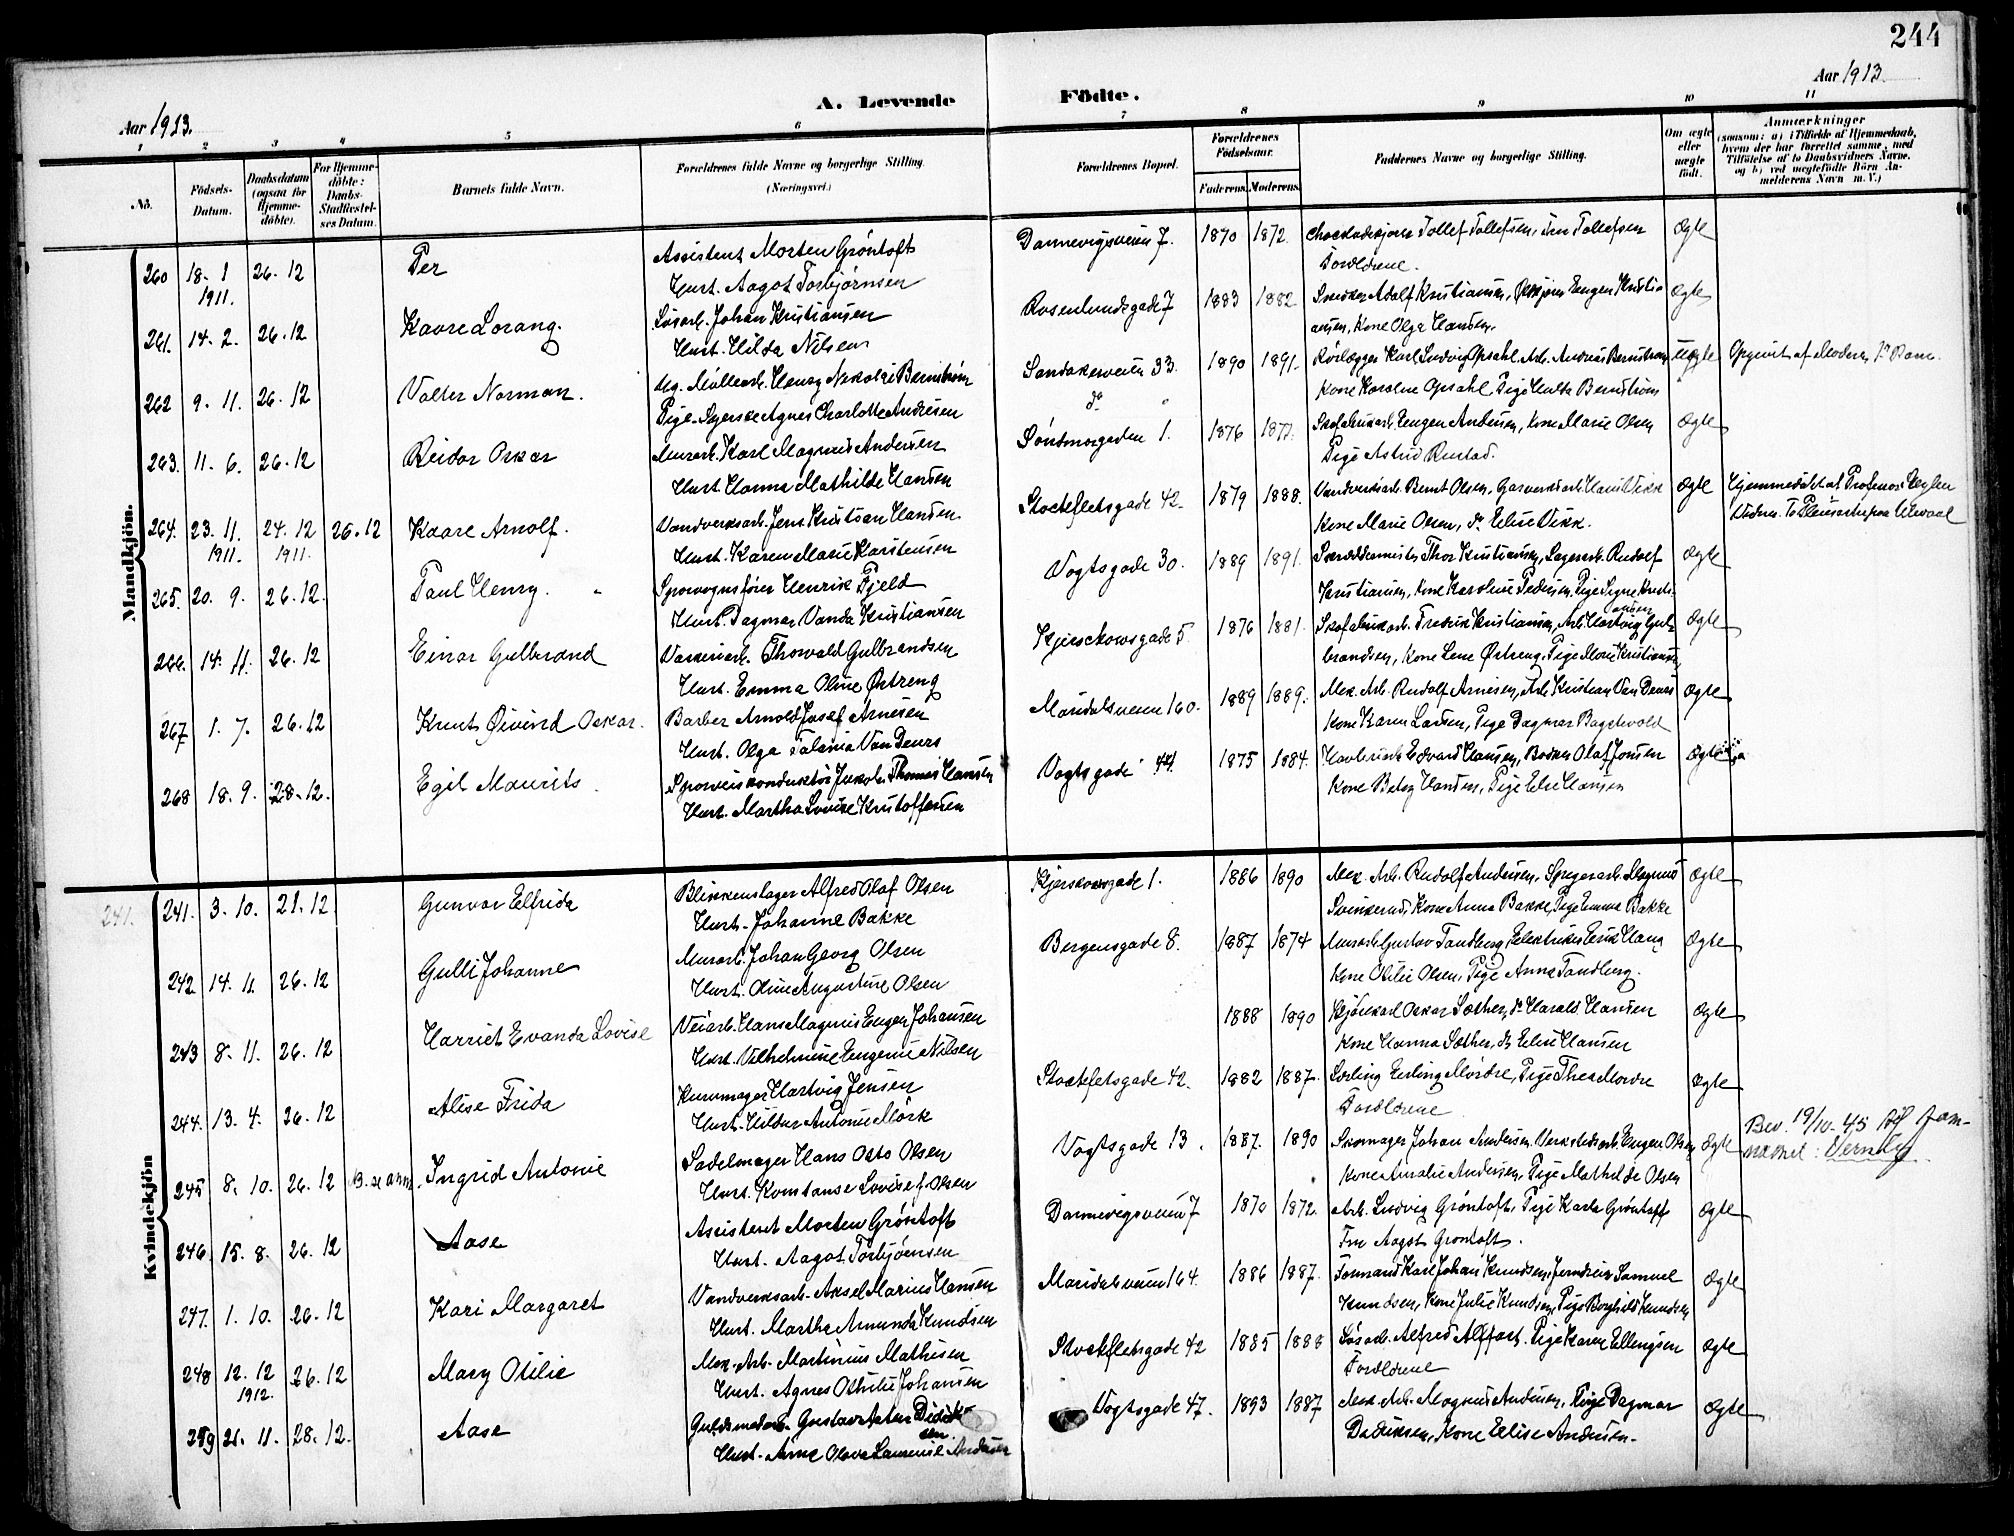 244
Aar 1913.
A. Levende Födte.
Aar 1913.
1 2 3 4 5 6 7 8 9 10 11
No.
Födsels-Datum.
Daabsdatum (ogsaa for Hjemmedöbte).
For Hjemmedöbte: Daabs-Stadfæstelses Datum.
Barnets fulde Navn.
Forældrenes fulde Navne og borgerlige Stilling. (Næringsvei.)
Forældrenes Bopæl.
Forældrenes Födselsaar.
Faderens. Moderens.
Faddernes Navne og borgerlige Stilling.
Om ægte eller uægte födt.
Anmærkninger
(saasom: a) i Tilfælde af Hjemmedaab, hvem der har forrettet samme, med Tilföielse af to Daabsvidners Navne, og b) ved uægtefödte Börn Anmelderens Navn m. V.)
Mandkjön.
260 18. 1 1911. 26. 12 Per Assistent Morten Gröntoft Dannevigsveien 7. 1870 1872. Tollef Tollefsen, Fru Tollefsen Ægte
Hust. Aagot Torbjørnsen Forældrene.
261. 14. 2. 26. 12 Kaare Lorang. Løsarb. Johan Kristiansen Rosenlundsgade 7 1883 1882 Snedker Adolf Kristiansen, Eugen Kristiansen, Kone Olga Hansen. Ægte
Hust. Hilda Nilsen
262 9. 11. 26. 12 Valter Norman. Ug. Møllearb. Henry Nikolai Bernstrøm Sandakerveien 33. 1890 1891. Rørlægger Karl Ludvig Opsahl, Arb. Andreas Bernstrøm Uægte Opgivit af Moderen
Pige. Syerske Agnes Charlotte Andresen do Kone Karoline Opsahl, Pige Hulda Bernstrøm
263. 11. 6. 26. 12 Reidar Oskar Murarb. Karl Magnus Andersen Søndmørgaden 1. 1876 1877. Skofabrikarb. Eugen Andersen, Kone Marie Olsen Ægte
Hust. Hanna Mathilde Hansen Pige Astrid Rustad.
264. 23. 11. 1911. 24. 12 1911. 26. 12 Kaare Arnolf. Vandverksarb. Jens Kristian Hansen Stockfletsgade 42. 1879 1888. Vandverksarb. Bernt Olsen, Gasverksarb. Vikk Ægte Hjemmedöbt af Professor
Hust. Karen Marie Karstensen Kone Marie Olsen, do Elise Vikk.
265. 20. 9. 26. 12. Paul Henry. Sporvognsfører Henrik Fjeld Vogtsgade 30. 1889 1891. Skræddermester Thor Kristiansen, Lagerarb. Rudolf Ægte
Hust. Dagmar Vanda Kristiansen Kristiansen, Kone Karoline Pedersen, Pige Signe Kristiansen
266. 14. 11. 26. 12 Einar Gulbrand Vaskeriarb. Thorvald Gulbrandsen Kjerschowsgade 5. 1876 1881. Skofabrikarb. Fredrik Kristiansen, Arb. Hartvig Gulbrandsen, Kone Lene Østreng, Pige Marie Kristiansen, Ægte
Hust. Emma Oline Østreng
267 1. 7. 26. 12 Knut Øivind Oskar. Barber Arnold Josef Arnesen Maridalsveien 160. 1889 1889. Mek. Arb. Rudolf Arnesen, Arb. Kristian Van Deurs Ægte
Hust. Olga Van Deurs Kone Karen Larsen, Pige Dagmar
268 18. 9. 28. 12. Egil Maurits Sporveiskonduktør Jakob Thomas Hansen Vogtsgade 44. 1875 1884. Edvard Hansen, Olaf Jonsen Ægte
Hust. Martha Lovise Kristoffersen Kone Betsy Hansen, Pige Else Hansen
Kvindekjön
241. 241. 3. 10. 21. 12 Gunvor Elfrida Blikkenslager Alfred Olaf Olsen Kjerskowsgade 1. 1886 1890 Mek. Arb. Rudolf Andersen, Magnus Ægte
Hust. Johanne Bakke Kone Anna Bakke, Pige Emma Bakke
242 14. 11. 26. 12 Gulli Johanne Murarb. Johan Georg Olsen Bergensgade 8. 1887 1874 Murarb. Gustav Tandberg, Elektriker Erik Haug Ægte
Hust. Oline Augustine Olsen Kone Otilie Olsen, Pige Anna Tandberg.
243 8. 11. 26. 12 Harriet Evanda Lovise Veiarb. Hans Magnus Eugen Johansen 1888 1890 Kjørekarl Oskar Sæther, do Harald Hansen Ægte
Hust. Vilhelmine Eugenie Nilsen Kone Hanna Sæther, do Elise Hansen
244. 13. 4. 26. 12 Alise Frida Kurvmager Hartvig Jensen Stockfletsgade 42. 1882 1887. Erling Mordre, Pige Thea Mordre Ægte
Hust. Hildur Antonie Mørk Forældrene
245 8. 10. 26. 12 Ingrid Antonie Sadelmager Hans Otto Olsen Vogtsgade 13. 1887. 1890 Skomager Johan Andersen, Verkstedsarb. Eugen Olsen Ægte Bev. 19/10. 45 på familienavnet: Vernby.
Hust. Konstanse Lovise Olsen Kone Amalie Andersen, Pige Mathilde Olsen
246. 15. 8. 26. 12 Aase Assistent Morten Gröntoft Dannevigsveien 7 1870 1872. Arb. Ludvig Gröntoft, Pige Karla Gröntoft Ægte
Hust. Aagot Torbjørnsen Fru Aagot Gröntoft.
247. 1. 10. 26. 12 Kari Margaret Vandverksarb. Aksel Marius Hansen Maridalsveien 164. 1886 1887. Formand Karl Johan Knudsen, Samuel Ægte
Hust. Martha Amanda Knudsen Knudsen, Kone Julie Knudsen, Pige Borghild Knudsen
248 12. 12 1912. 26. 12 Mary Otilie Mek. Arb. Martinius Mathisen Stockfletsgade 42 1885 1888 Løsarb. Alfred, Pige Karen Ellingsen Ægte
Hust. Agnes Othilie Johansen Forældrene
249 21. 11. 28. 12. Aase Guldsmedarb. Gustav Anton Didriksen Vogtsgade 47. 1893 1887 Mek. Arb. Magnus Andersen, Pige Dagmar Ægte
Hust. Laurense Andersen Didriksen, Kone Elise Andersen.